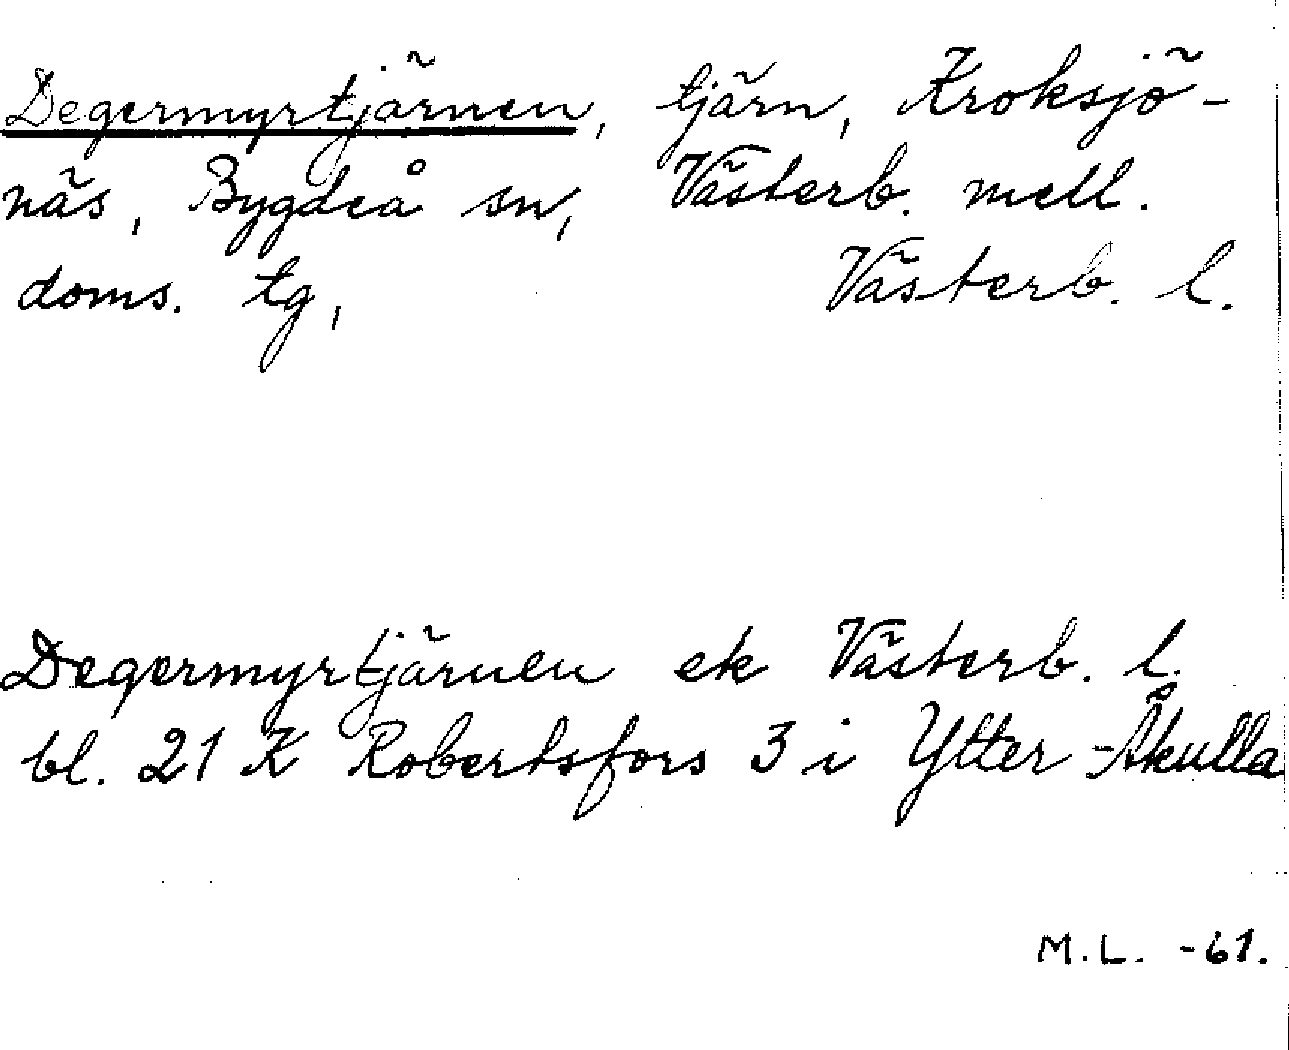 Degermyrtjärnen, tjärn, Kroksjö-
näs, Bygdeå sn, Västerb. mell.
doms. tg, Västerb. l.
Degermyrtjärnen ek Västerb. l.
bl. 21 K Robertsfors 3 i Ytter-Åkulla
M.L. -61.